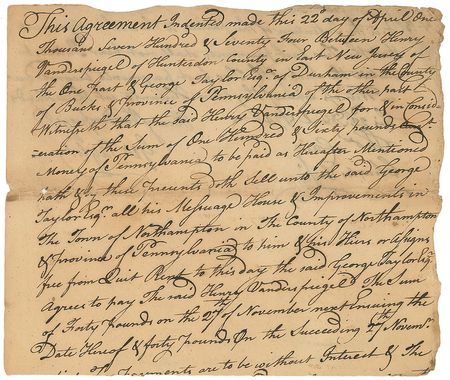 This Agreement Indented made this 22d day of April One
Thousand Seven Hundred & Seventy Four Between Henry
Vanderspiegel of Hunterdon County in East New Jersey of
the One part & George Taylor Esqr. of Durham in the County
of Bucks & Province of Pennsylvania of the other part
Witnesseth that the said Henry Vanderspiegel for & in consid-
eration of the Sum of One Hundred & Sixty pounds
Money of Pennsylvania to be paid as Hereafter Mentioned
hath & by these presents doth Sell unto the said George
Taylor Esqr. all his Messuage House & Improvements in
The Town of Northampton in The County of Northampton
& province of Pennsylvania to him & his Heirs or assigns
free from Quit Rent to this day the said George Taylor Esqr.
Agrees to pay The said Henry Vanderspiegel The Sum
of Forty pounds on the 27th of November next Ensuing the
Date Hereof & forty pounds On the Succeeding 27th Novemr.
are to be without Interest & The